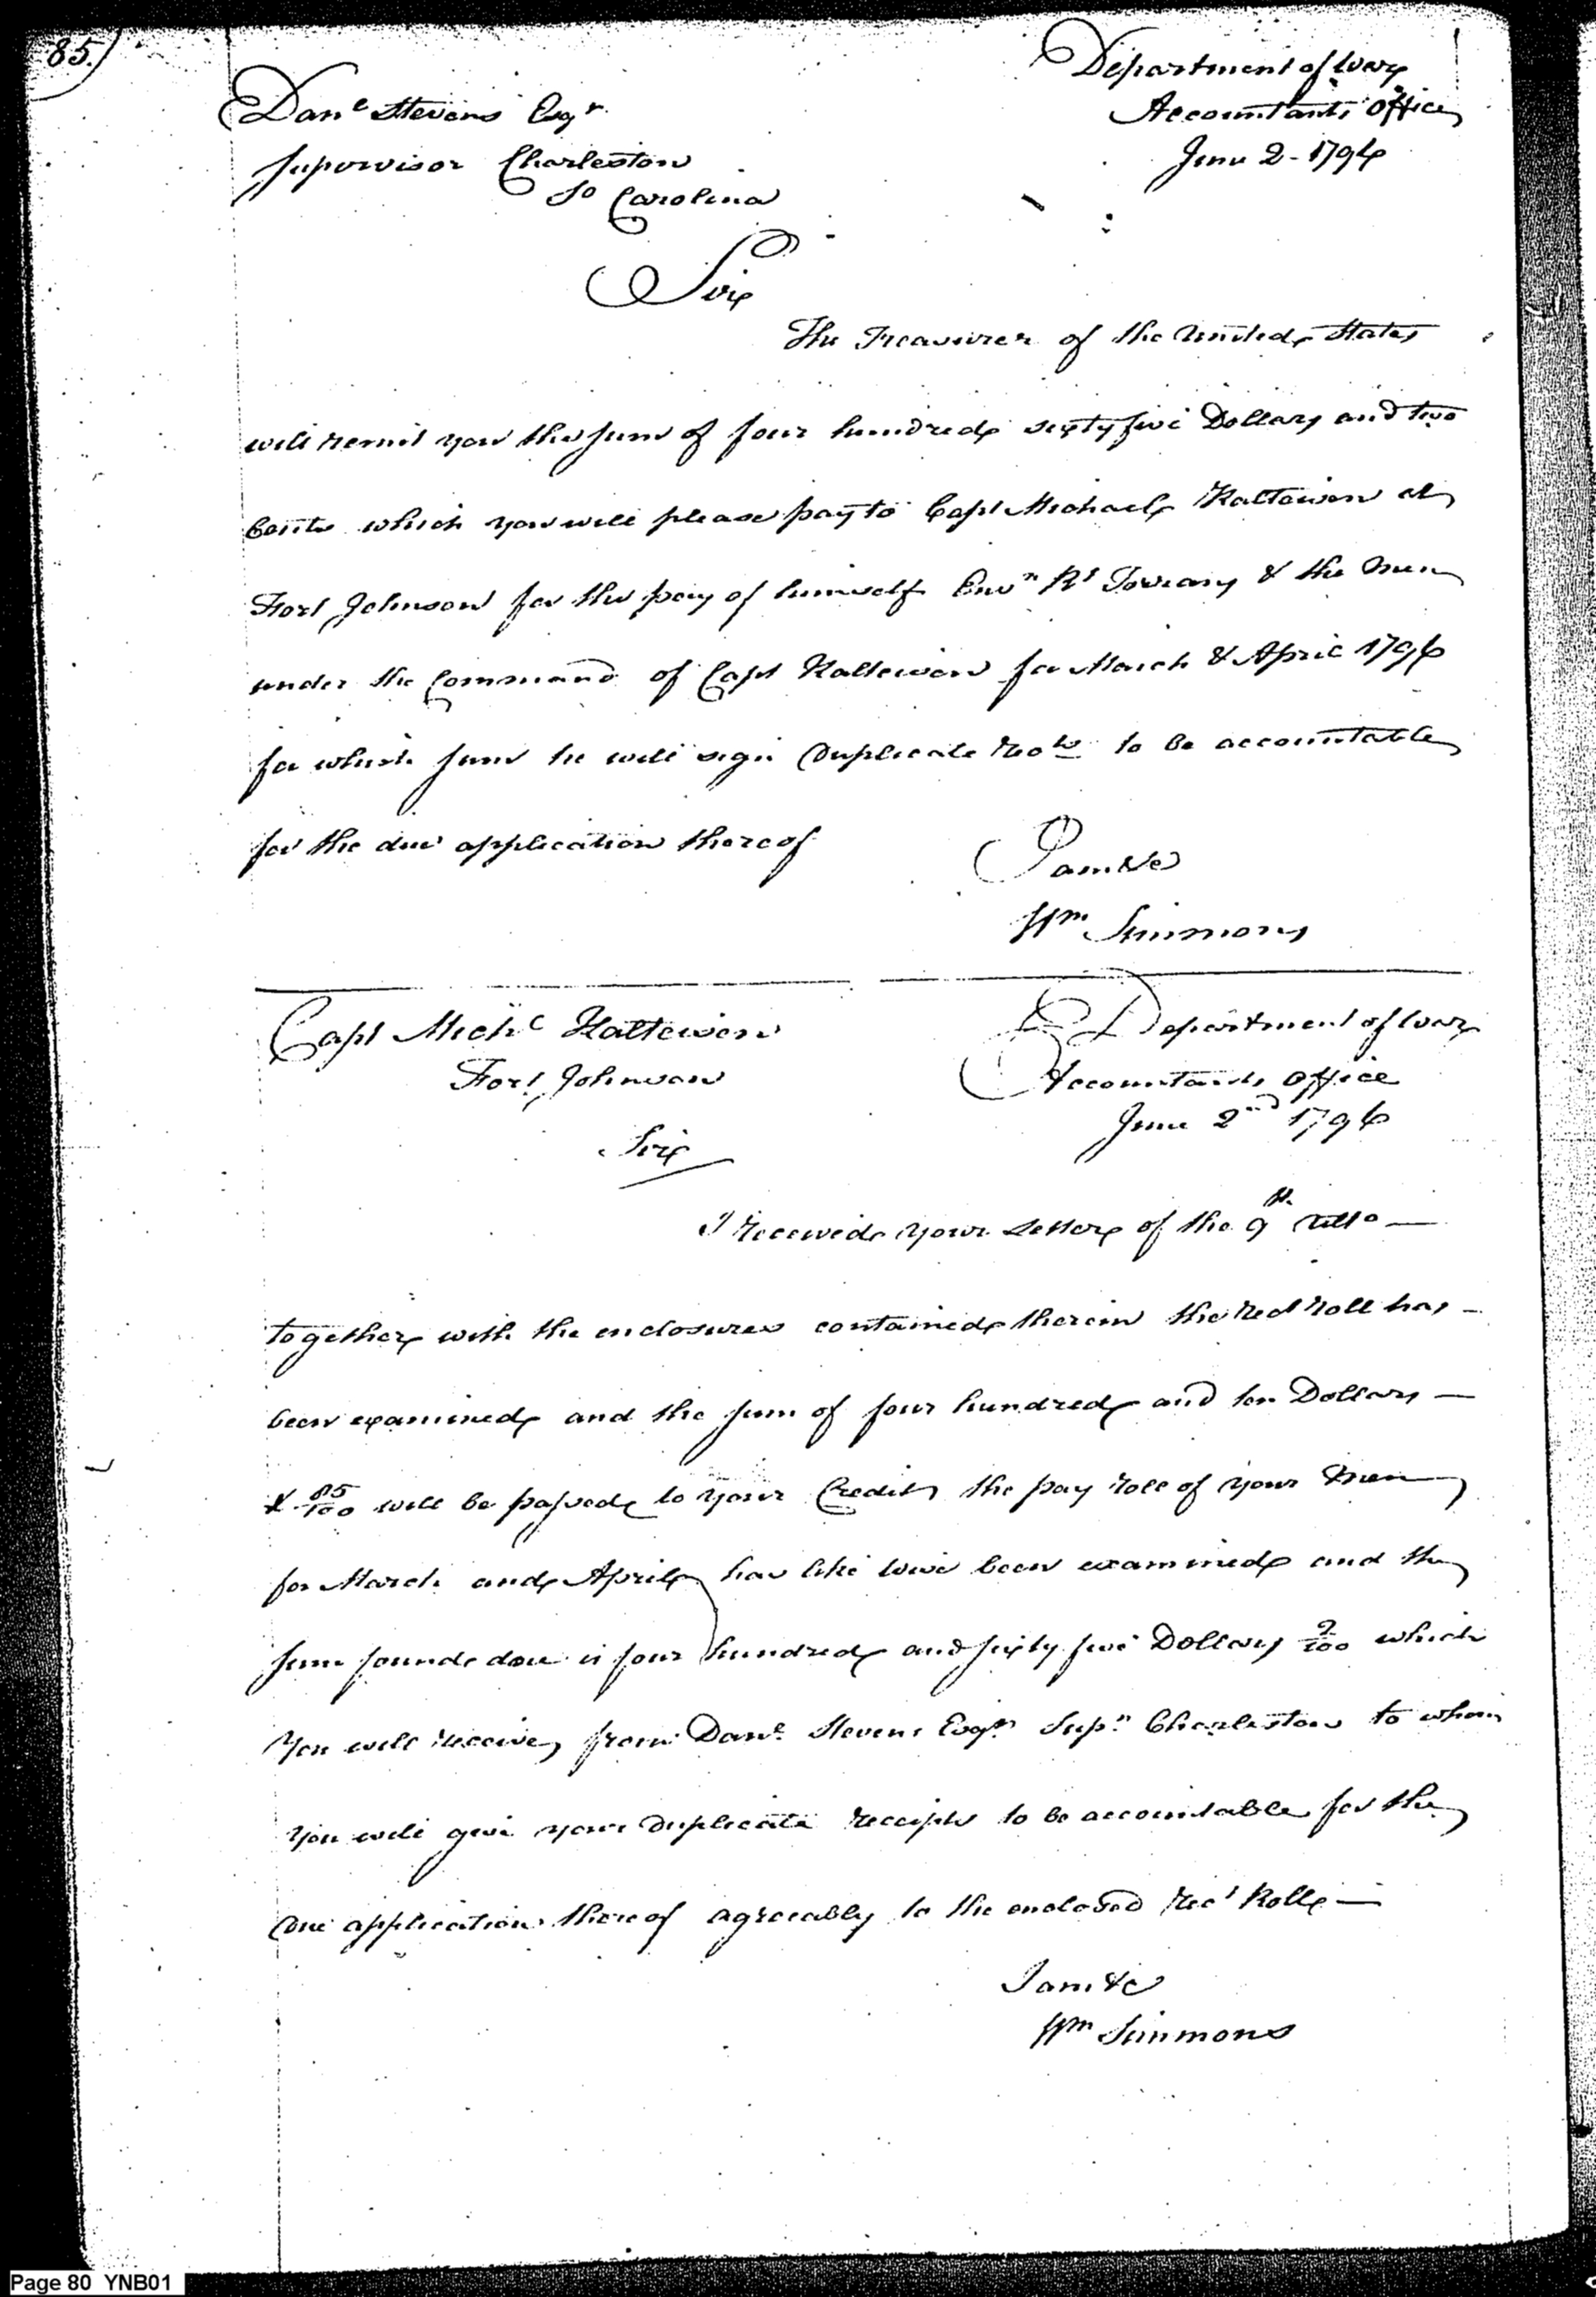 85.
Department of War
Accountants Office
June 2 - 1796
Danl Stevens Esqr
Supervisor Charleston
So Carolina
Sir
The Treasurer of the United States
will remit you the sum of four hundred sixty five Dollars and two
Cents which you will please pay to Capt Michael Kalteisen at
Fort Johnson for the pay of himself Ensn Rt & the men
under the Command of Capt Kalteisen for March & April 1796
for which sum he will sign Duplicate Rec ts to be accountable
for the due application thereof
I am &c
Wm Simmons
Capt Michl Kalteisen
Fort Johnson
Department of War
Accountants Office
June 2nd 1796
Sir
I received your Letter of the 9th Ullo —
together with the enclosures contained therein the Rect Roll has —
been examined and the sum of four hundred and ten Dollars —
& 85/100 will be passed to your Credit the pay role of your men
for March and April has like wise been examined and the
sum found due is four hundred and sixty five Dollars 2/100 which
You will receive from Danl Stevens Esqr Supr Charleston to whom
You will give your Duplicate receipts to be accountable for the
Due application thereof agreeably to the enclosed Rect Roll —
I am &c
Wm Simmons
Page 80 YNB01